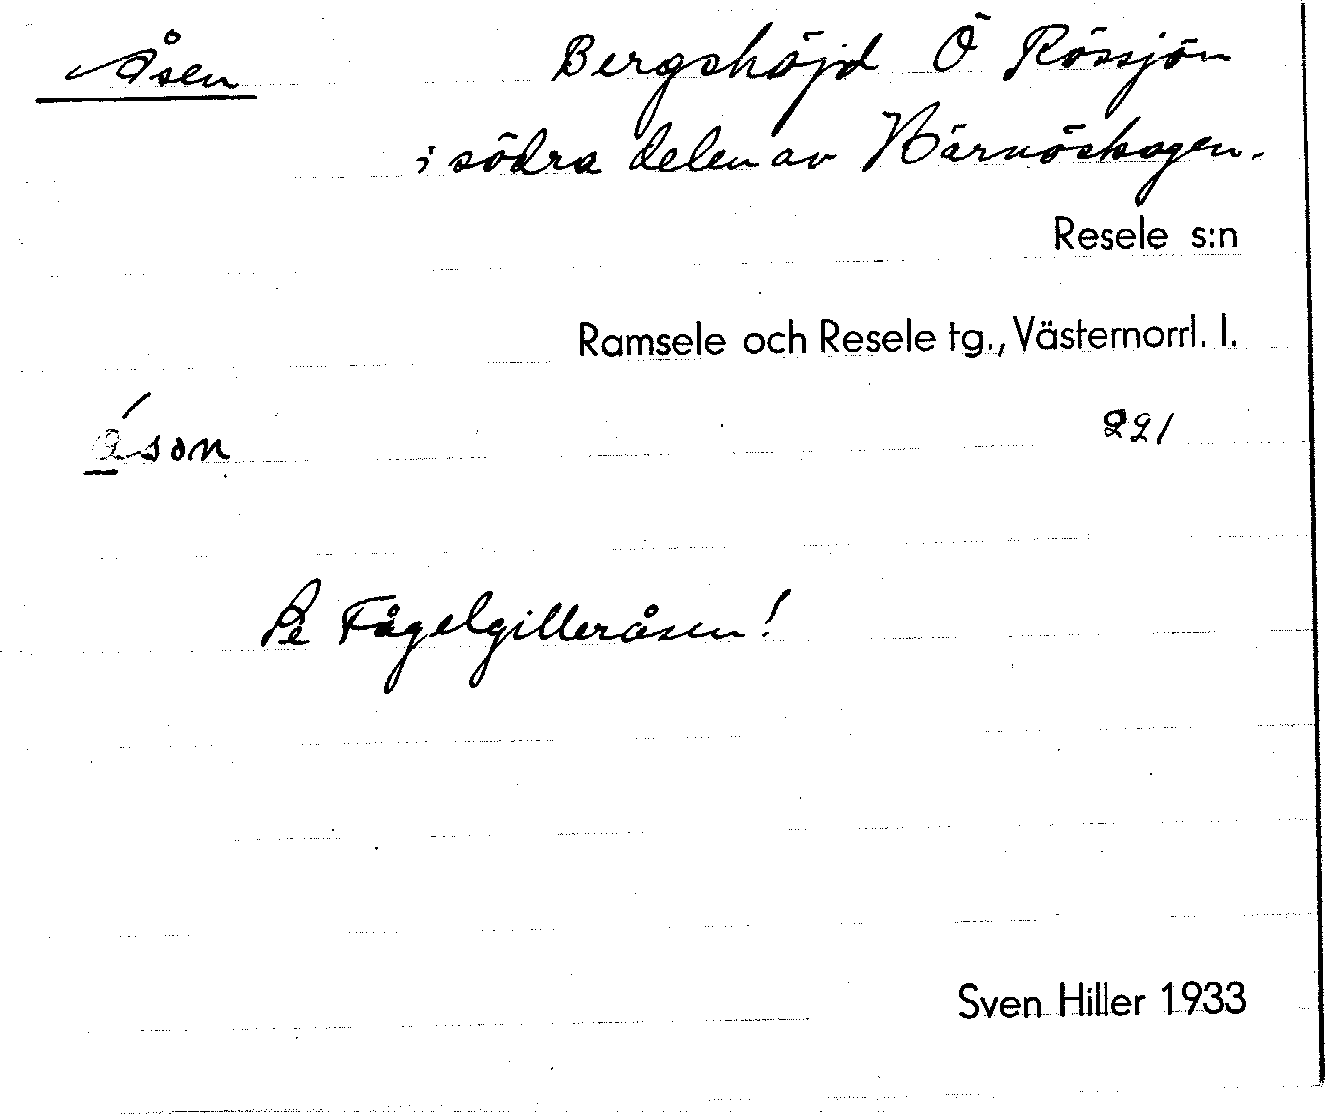 Åsen
Bergshöjd Ö Rössjön
i södra delen av Närnöskogen.
Resele s:n
Ramsele och Resele tg., Västernorrl. l.
221
Se Fågelgilleråsen!
Sven Hiller 1933